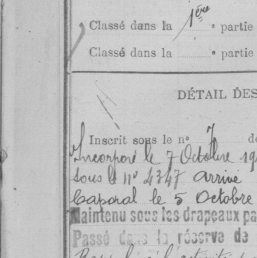 Classé dans la 1ère partie
Classé dans la partie
DÉTAIL DES
Inscrit sous le n° 7 de
Incorporé le 7 Octobre 19
sous le n° 4347 Arrivé
Caporal le 5 Octobre
Maintenu sous les drapeaux pa
Passé dans la réserve de